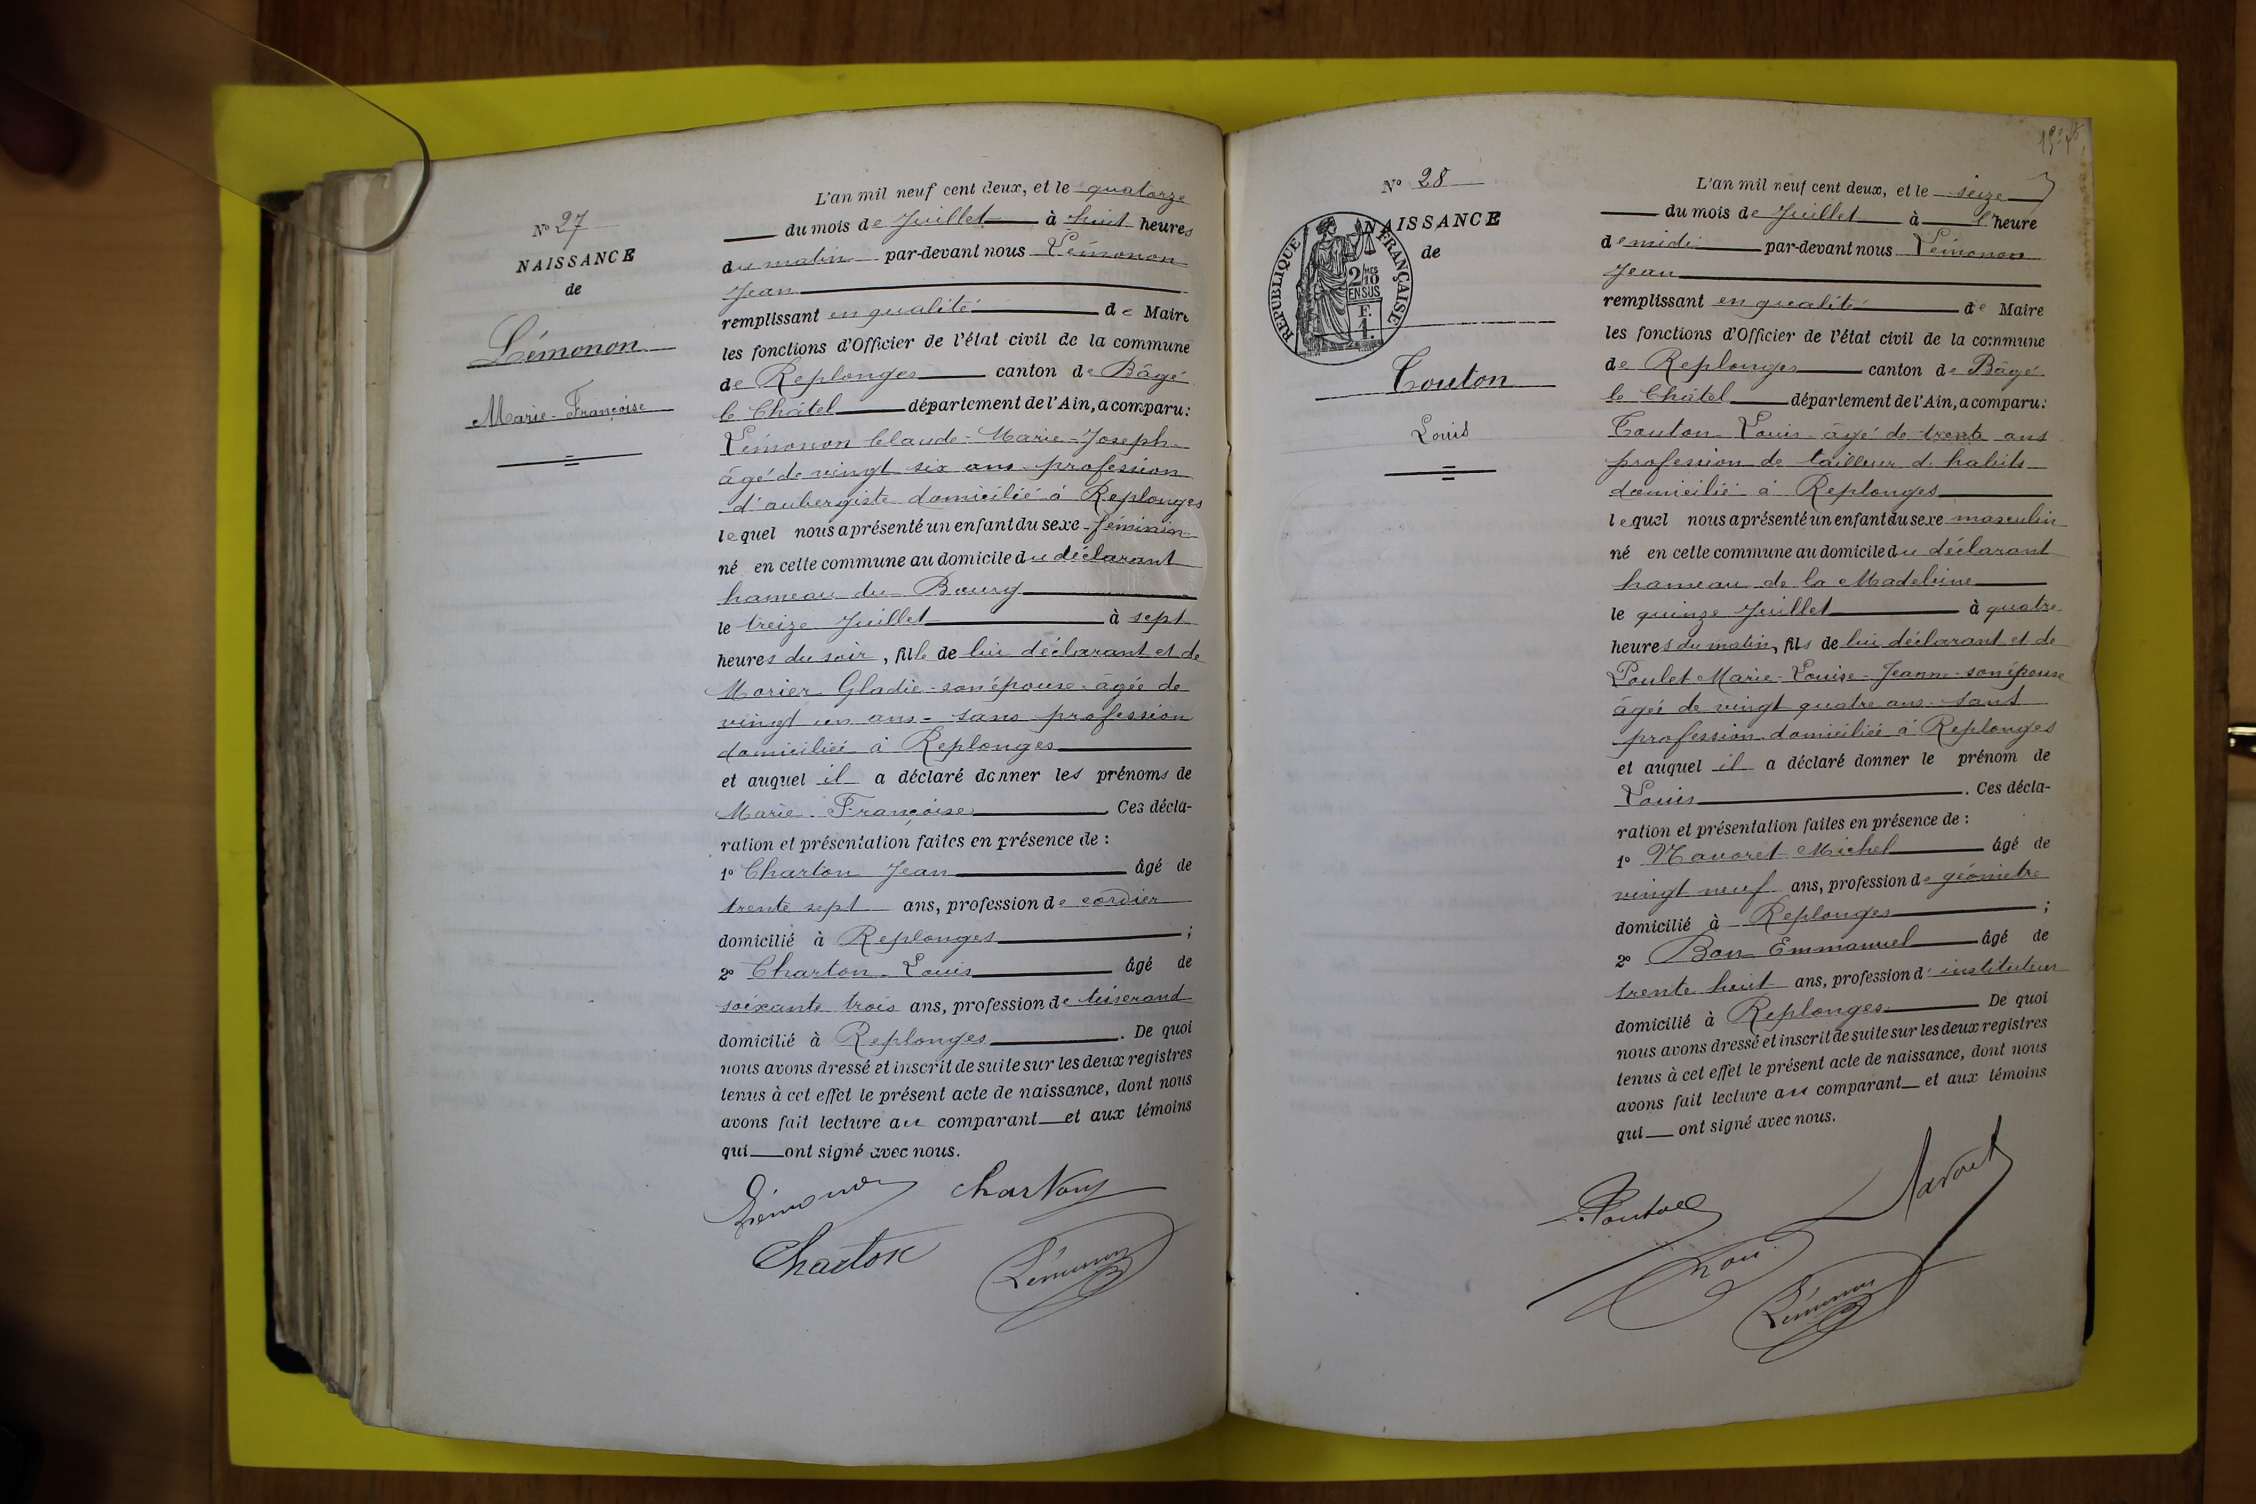 N° 27
NAISSANCE
de
Lémonon
Marie-Françoise
L'an mil neuf cent deux, et le quatorze
du mois de Juillet à huit heures
du matin par-devant nous Lémonon
Jean
remplissant en qualité de Maire
les fonctions d'Officier de l'état civil de la commune
de Replonges canton de Bâgé
le Châtel département de l'Ain, a comparu:
Lémonon Claude-Marie-Joseph
âgé de vingt six ans profession
d'aubergiste domicilié à Replonges
lequel nous a présenté un enfant du sexe féminin
né en cette commune au domicile du déclarant
hameau du Bourg
le treize Juillet à sept
heures du soir, fille de lui déclarant et de
Morier Gladie son épouse âgée de
vingt un ans - sans profession
domiciliée à Replonges
et auquel il a déclaré donner les prénoms de
Marie-Françoise. Ces décla-
ration et présentation faites en présence de :
1° Charton Jean âgé de
trente sept ans, profession de cordier
domicilié à Replonges ;
2° Charton Louis âgé de
soixante trois ans, profession de tisserand
domicilié à Replonges. De quoi
nous avons dressé et inscrit de suite sur les deux registres
tenus à cet effet le présent acte de naissance, dont nous
avons fait lecture au comparant et aux témoins
qui ont signé avec nous.
Lémonon Charton
Charton Lémonon
N° 28
NAISSANCE
de
RÉPUBLIQUE FRANÇAISE
2/10 MES
EN SUS
F.
1.
Couton
Louis
L'an mil neuf cent deux, et le seize
du mois de Juillet à l'heure
de midi par-devant nous Lémonon
Jean
remplissant en qualité de Maire
les fonctions d'Officier de l'état civil de la commune
de Replonges canton de Bâgé
le Châtel département de l'Ain, a comparu:
Couton Louis âgé de trente ans
profession de tailleur d'habits
domicilié à Replonges
lequel nous a présenté un enfant du sexe masculin
né en cette commune au domicile du déclarant
hameau de la Madeleine
le quinze Juillet à quatre
heures du matin, fils de lui déclarant et de
Poulet Marie-Louise-Jeanne son épouse
âgée de vingt quatre ans sans
profession domiciliée à Replonges
et auquel il a déclaré donner le prénom de
Louis. Ces décla-
ration et présentation faites en présence de :
1° Navoret Michel âgé de
vingt neuf ans, profession de géomètre
domicilié à Replonges ;
2° Bon Emmanuel âgé de
trente huit ans, profession d'instituteur
domicilié à Replonges De quoi
nous avons dressé et inscrit de suite sur les deux registres
tenus à cet effet le présent acte de naissance, dont nous
avons fait lecture au comparant et aux témoins
qui ont signé avec nous.
Navoret
Lémonon